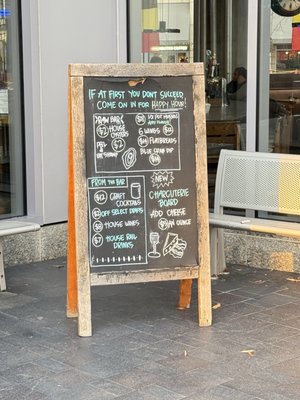 IF AT FIRST YOU DON'T SUCCEED,
COME ON IN FOR HAPPY HOUR!
RAW BAR
HOUSE
OYSTERS
6 WINGS
FLATBREADS
BLUE CRAB DIP
FROM THE BAR
$12 CRAFT
COCKTAILS
$2 OFF SELECT DRAFTS
$8 HOUSE WINES
$7 HOUSE RAIL
DRINKS
NEW
CHARCUTERIE
BOARD
ADD CHEESE
AN OUNCE